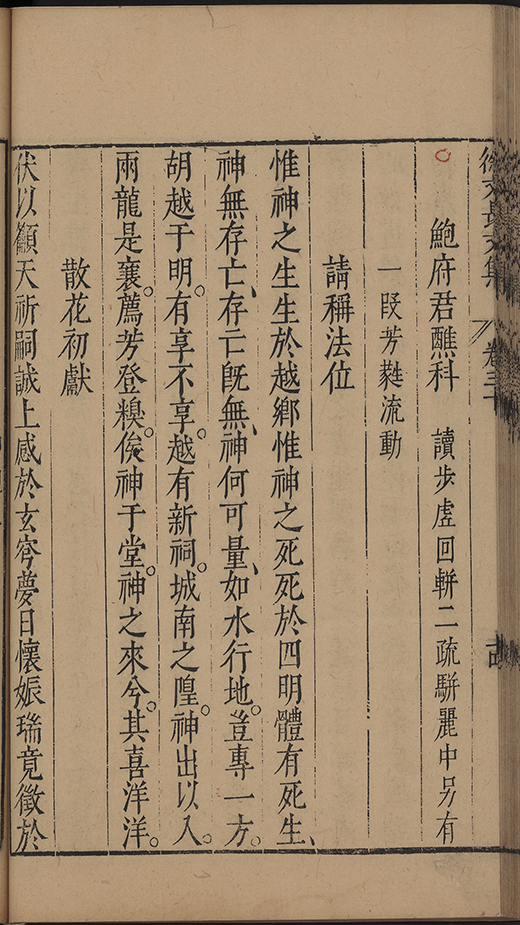 徐文長文集 卷三十
鮑府君醮科 讀步虛回軿二疏駢麗中另有
一叚芳蕤流動
請稱法位
惟神之生生於越鄉惟神之死死於四明體有死生、
神無存亡、存亡旣無、神何可量、如水行地。豈專一方。
胡越于明。有享不享。越有新祠。城南之隍。神出以入。
兩龍是襄。薦芳登糗。俟神于堂。神之來兮。其喜洋洋。
散花初獻
伏以籲天祈嗣誠上感於玄穹夢日懷娠瑞竟徵於